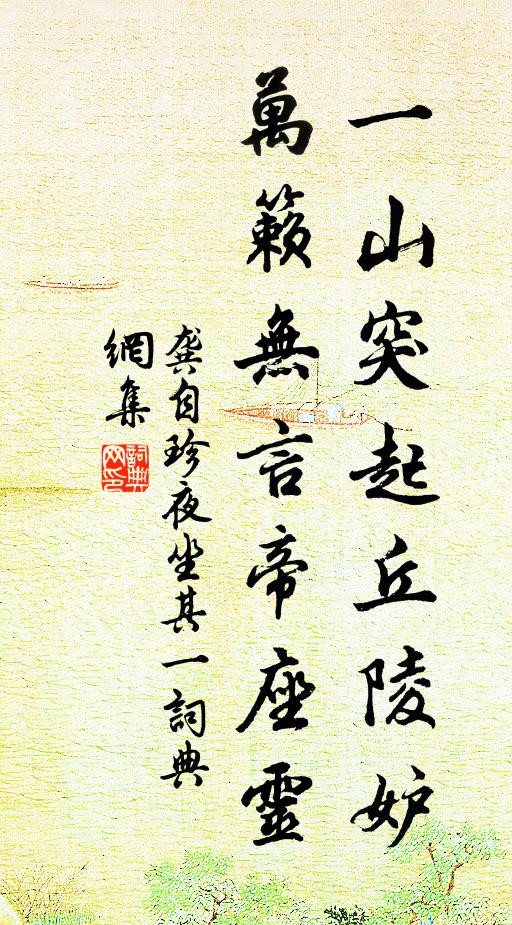 一山突起丘陵妒
萬籟無言帝座靈
龔自珍夜坐其一詞典
網集
詞典
网印